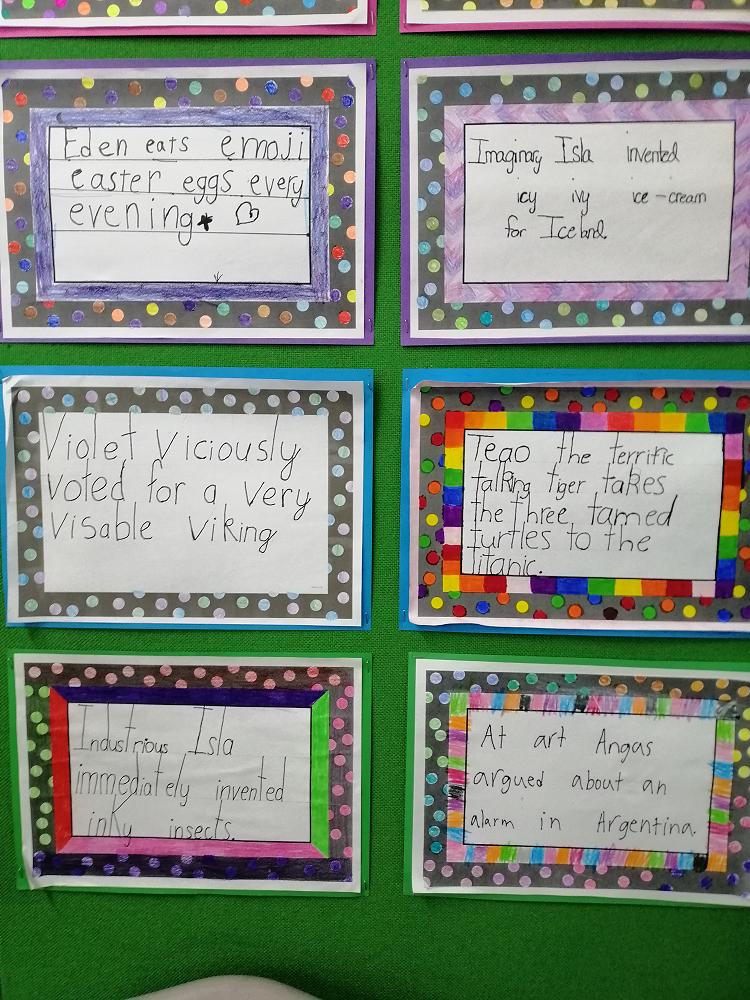 Eden eats emoji
easter eggs every
evening
Imaginary Isla invented
icy ivy ice-cream
for Iceland.
Violet Viciously
voted for a very
visable viking
Teao the terrific
talking tiger takes
the three tamed
turtles to the
titanic.
Industrious Isla
immediately invented
inky insects.
At art Angas
argued about an
alarm in Argentina.